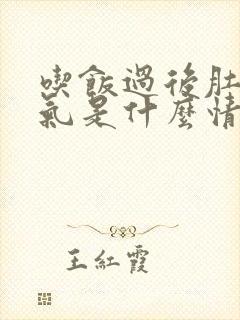 喫飯過後肚
氣是什麼情
王紅霞